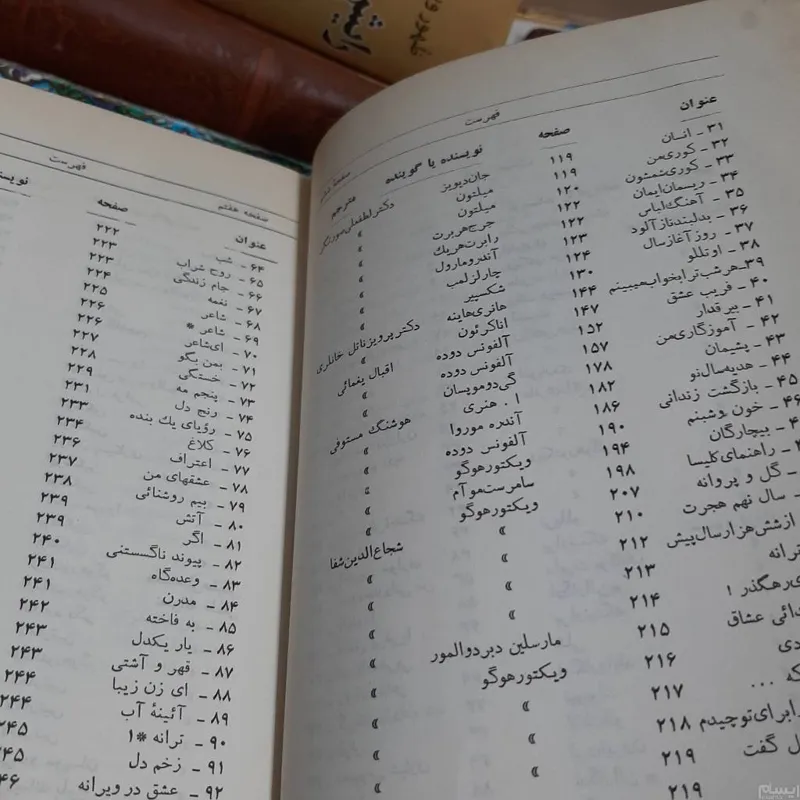 فهرست
عنوان صفحه نویسنده یا گوینده مترجم
۳۱ ـ انسان ۱۱۹ جان‌دیویز دکتر لطفعلی صورتگر
۳۲ ـ کوری‌من ۱۱۹ میلتون »
۳۳ ـ کوری‌شمشون ۱۲۰ میلتون »
۳۴ ـ ریسمان‌ایمان ۱۲۲ جرج‌هربرت »
۳۵ ـ آهنگ‌الیاس ۱۲۲ رابرت‌هریك »
۳۶ ـ بدلبند نازآلود ۱۲۳ آندرومارول »
۳۷ ـ روز آغاز سال ۱۲۴ چارلز لمب »
۳۸ ـ اوتللو ۱۳۰ شکسپیر »
۳۹ـ هرشب‌ترابخواب‌میبینم ۱۴۴ هانری‌هاینه دکتر پرویز ناتل خانلری
۴۰ ـ فریب عشق ۱۴۷ اناکرئون »
۴۱ ـ بیرقدار ۱۵۲ آلفونس دوده اقبال یغمائی
۴۲ ـ آموزگاری‌من ۱۵۷ آلفونس دوده »
۴۳ ـ پشیمان ۱۷۸ گی‌دوموپسان »
۴۴ ـ هدیه‌سال‌نو ۱۸۲ ا . هنری هوشنگ مستوفی
۴۵ ـ بازگشت زندانی ۱۸۶ آندره موروا »
۴۶ ـ خون و شبنم ۱۹۰ آلفونس دوده »
بیچارگان ۱۹۴ ویکتورهوگو »
راهنمای کلیسا ۱۹۸ سامرست‌موآم »
ـ گل و پروانه ۲۰۷ ویکتورهوگو شجاع‌الدین‌شفا
ـ سال نهم هجرت ۲۱۰ » »
ازشش‌هزارسال‌پیش ۲۱۲ » »
ترانه ۲۱۳ » »
ی‌رهگذر ! ۲۱۴ » »
دائی عشاق ۲۱۵ مارسلین دبردوالمور »
دی ۲۱۶ ویکتورهوگو »
که ... ۲۱۷ » »
برای‌توچیدم ۲۱۸ » »
ل گفت ۲۱۹ » »
۲۱۹
فهرست
صفحه هفتم
عنوان صفحه
۶۴ ـ شب ۲۲۲
۶۵ ـ روح شراب ۲۲۳
۶۶ ـ جام زندگی ۲۲۳
۶۷ ـ نغمه ۲۲۴
۶۸ ـ شاعر ۲۲۵
۶۹ ـ شاعر * ۲۲۶
۷۰ ـ ای‌شاعر ۲۲۶
۷۱ ـ بمن بگو ۲۲۷
۷۲ ـ خستگی ۲۲۸
۷۳ ـ پنجم مه ۲۲۹
۷۴ ـ رنج دل ۲۳۱
۷۵ ـ رؤیای یك بنده ۲۳۳
۷۶ ـ کلاغ ۲۳۴
۷۷ ـ اعتراف ۲۳۶
۷۸ ـ عشقهای من ۲۳۷
۷۹ ـ بیم روشنائی ۲۳۸
۸۰ ـ آتش ۲۳۹
۸۱ ـ اگر ۲۳۹
۸۲ ـ پیوند ناگسستنی ۲۴۰
۸۳ ـ وعده‌گاه ۲۴۱
۸۴ ـ مدرن ۲۴۱
۸۵ ـ به فاخته ۲۴۲
۸۶ ـ یار یکدل ۲۴۳
۸۷ ـ قهر و آشتی ۲۴۳
۸۸ ـ ای زن زیبا ۲۴۴
۸۹ ـ آئینهٔ آب ۲۴۴
۹۰ ـ ترانه *۱ ۲۴۵
۹۱ ـ زخم دل ۲۴۵
۹۲ ـ عشق در ویرانه ۲۴۶
ایسام